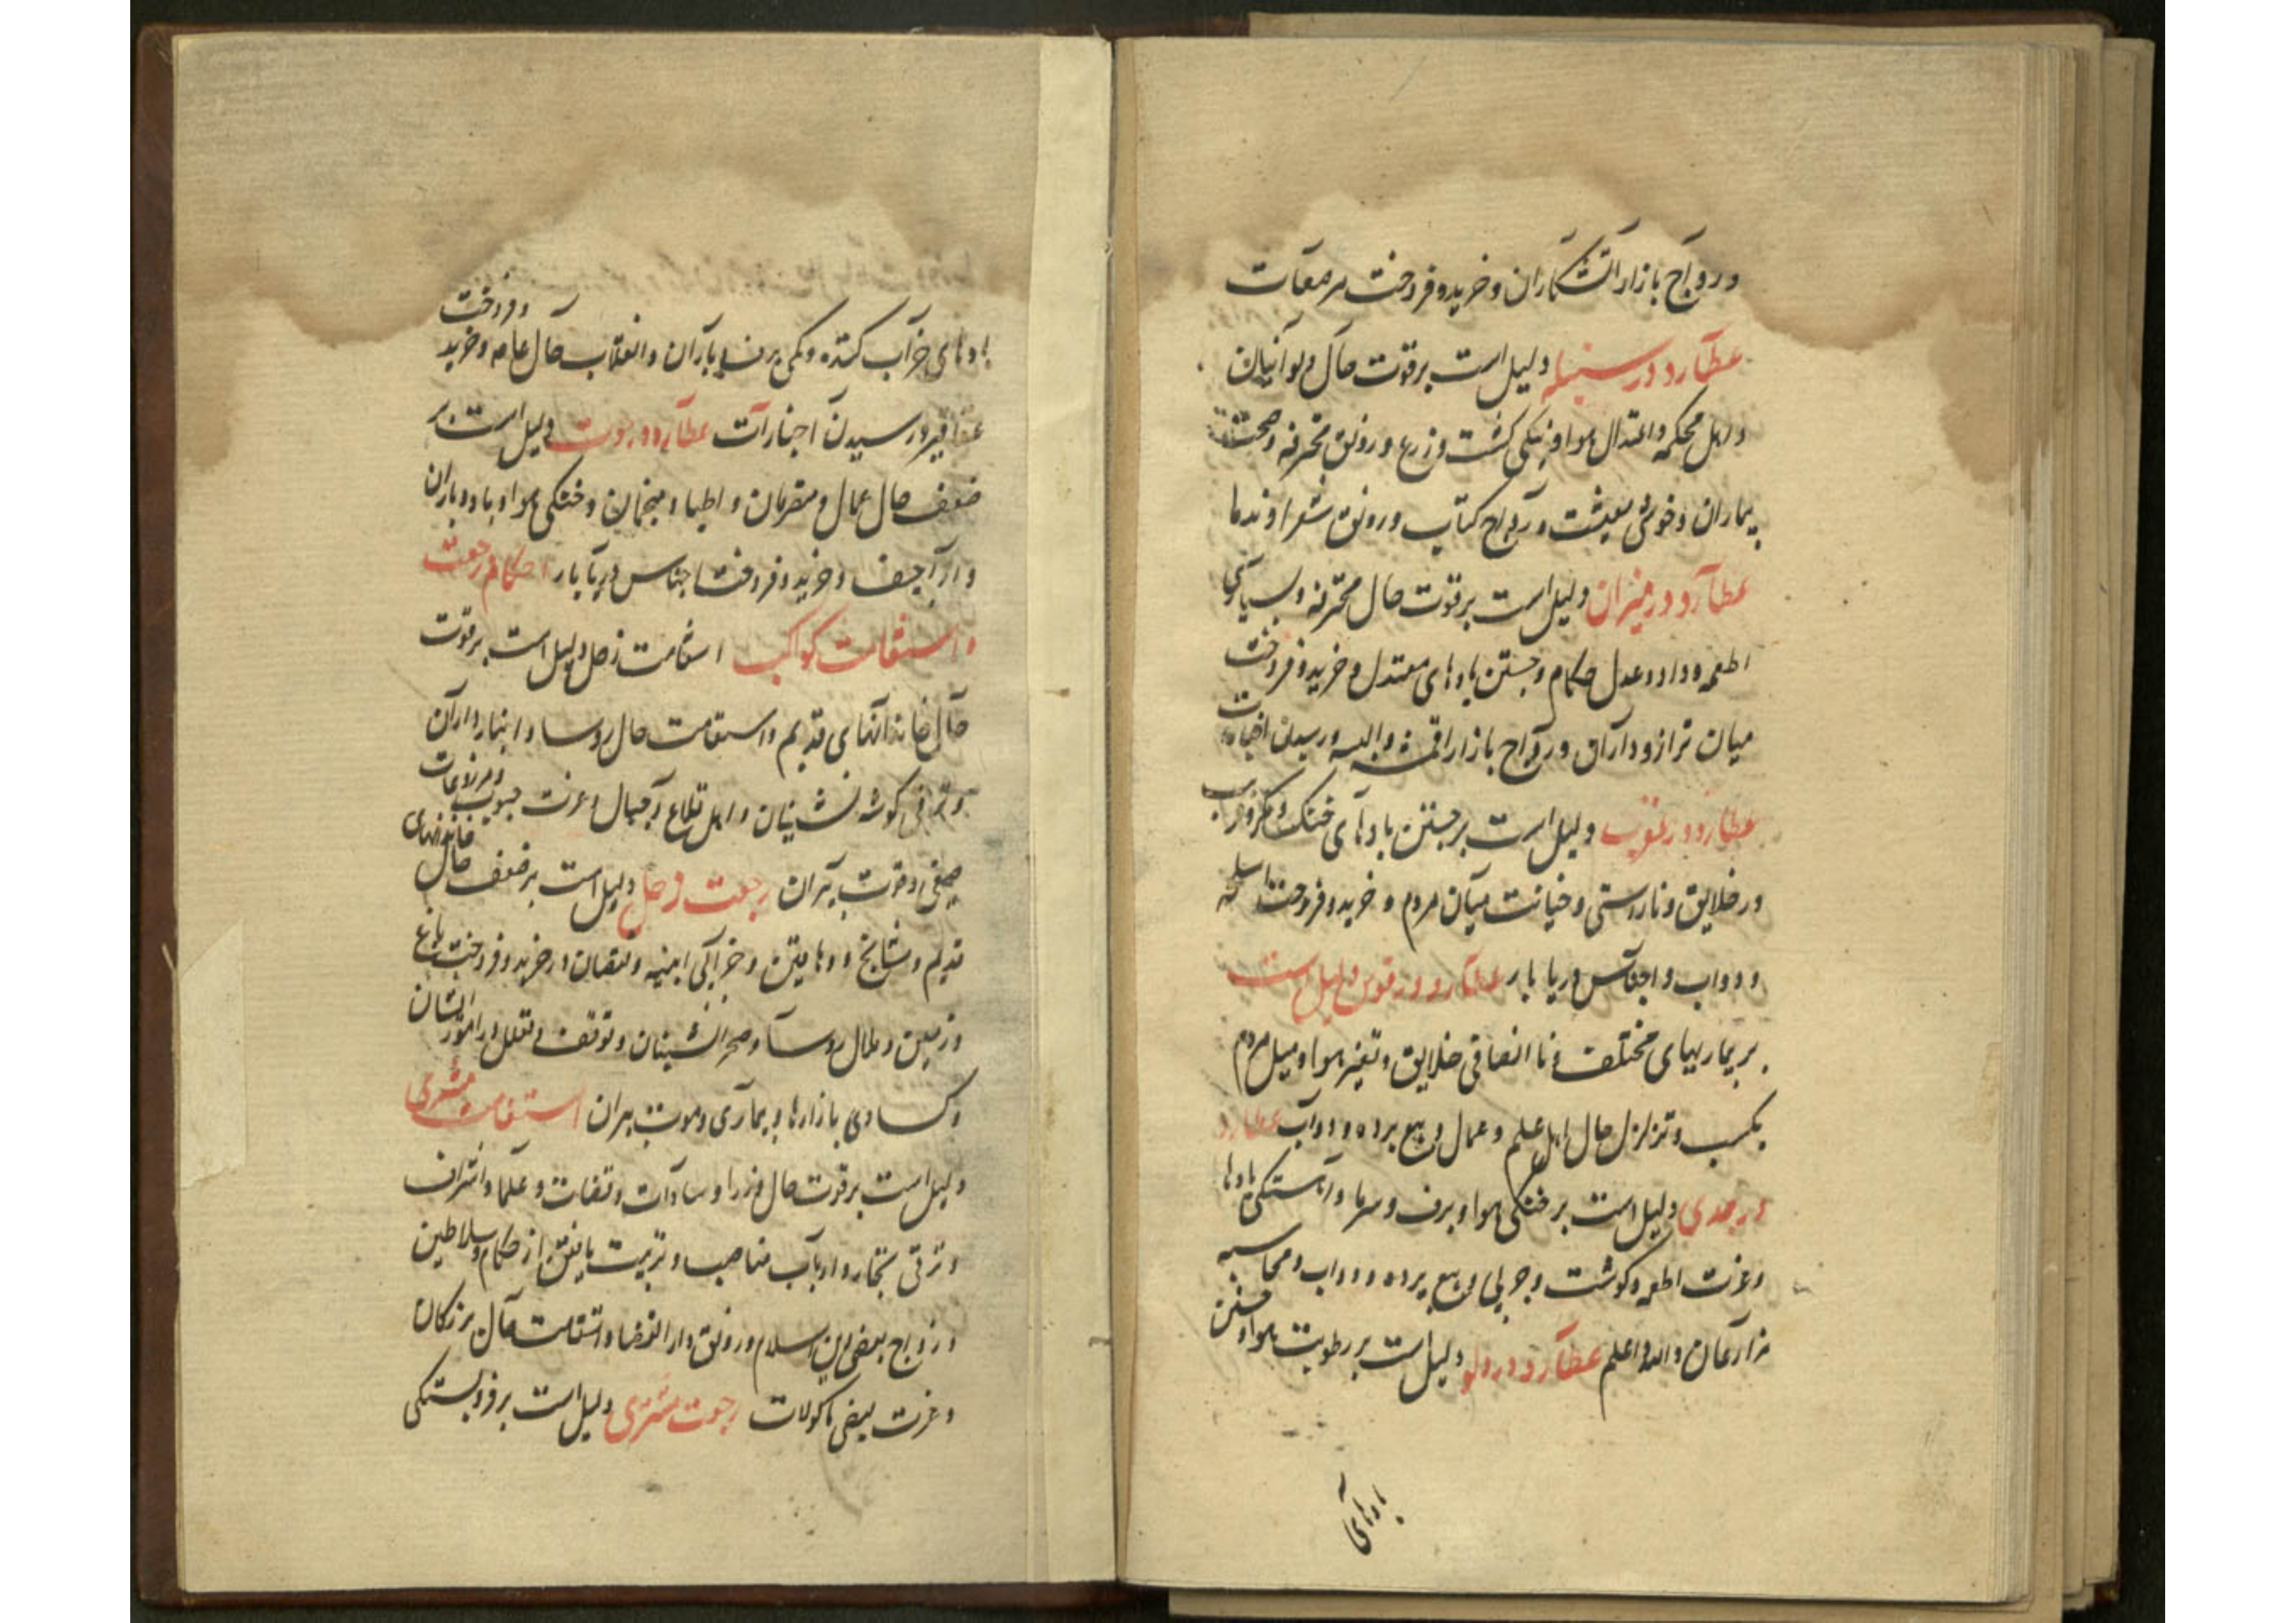 و رواج بازار آتشکاران و خرید و فروخت مرصعات
عطارد در سنبله دلیل است بر قوت حال دیوانیان
و اهل محکمه و اعتدال هوا و نیکی کشت و زرع و رونق محترفه و صحت
بیماران و خوشی معیشت و رواج کتاب و رونق شعرا و ندما
عطارد در میزان دلیل است بر قوت حال محترفه و بسیاری
اطعمه و داد و عدل حکام و جستن بادهای معتدل و خرید و فروخت
میان ترازو داران و رواج بازار اقمشه و البسه و رسیدن اخبارات
عطارد در عقرب دلیل است بر جستن بادهای خنک و مکر و
در خلایق و ناراستی و خیانت میان مردم و خرید و فروخت اسلحه
و دواب و اجناس دریا بار عطارد در قوس دلیل است
بر بیماریهای مختلف و نا انصافی خلایق و تغیر هوا و میل مردم
بکسب و تزلزل حال اهل علم و عمال و بیع برده و دواب عطارد
در جدی دلیل است بر خنکی هوا و برف و سرما و آهستگی بادها
و عزت اطعمه و گوشت و چربی و بیع برده و دواب و محاسبه
مزارعان والله اعلم عطارد در دلو دلیل است بر رطوبت هوا و جستن
بادهای
بادهای خراب کننده و کمی برف و باران و انقلاب حال عامه و خرید و فروخت
عقاقیر و رسیدن اخبارات عطارد در حوت دلیل است بر
ضعف حال عمال و متصرفان و اطبا و منجمان و خنکی هوا و باد و باران
و اراجیف و خرید و فروخت اجناس دریا بار احکام رجعت
و استقامت کواکب استقامت زحل دلیل است بر قوت
حال خاندانهای قدیم و استقامت حال روسا و انبارداران
و ترقی گوشه نشینان و اهل قلاع و جبال و عزت حبوب و مزروعات
صیفی و قوت پیران رجعت زحل دلیل است بر ضعف حال خاندانهای
قدیم و مشایخ و دهاقین و خرابی ابنیه و نقصان در خرید و فروخت باغ
و زمین و ملال روسا و صحرانشینان و توقف و تعلل در امور ایشان
و کسادی بازارها و بیماری و موت پیران استقامت مشتری
دلیل است بر قوت حال وزرا و سادات و قضات و علما و اشراف
و ترقی تجار و ارباب مناصب و تربیت یافتن از حکام و سلاطین
و رواج بعضی دین اسلام و رونق دار القضا و استقامت حال بزرگان
و عزت بعضی ماکولات رجعت مشتری دلیل است بر فروبستگی